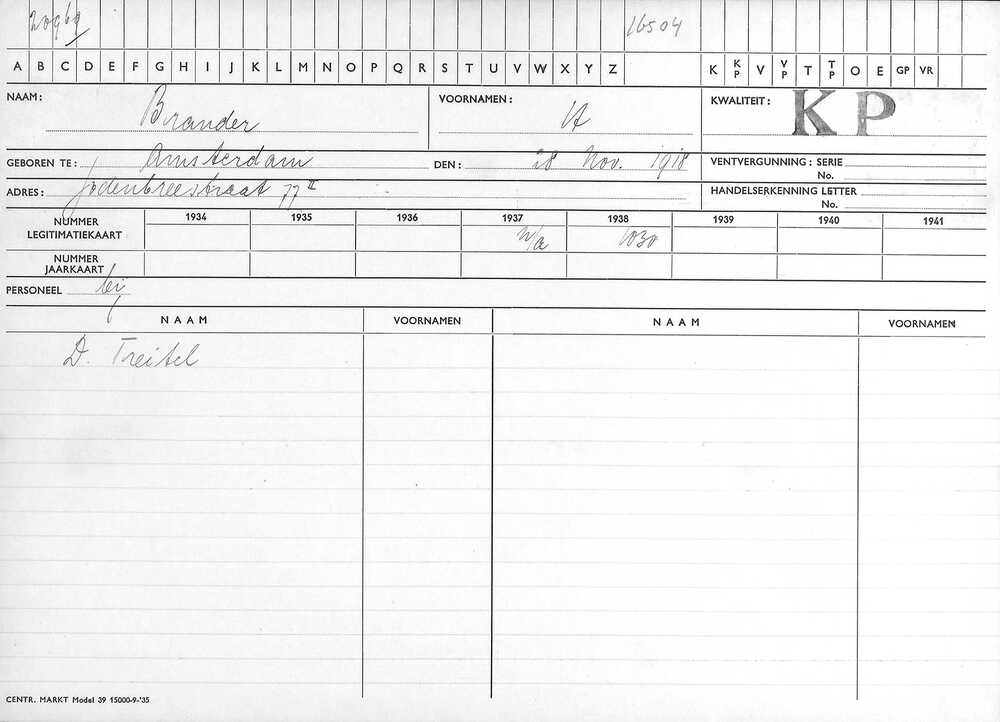 20969 16504
A B C D E F G H I J K L M N O P Q R S T U V W X Y Z K KP V VP T TP O E GP VR
NAAM: Brander VOORNAMEN: A KWALITEIT: KP
GEBOREN TE: Amsterdam DEN: 28 Nov. 1918 VENTVERGUNNING: SERIE
No.
ADRES: Jodenbreestraat 77 II HANDELSERKENNING LETTER
No.
1934 1935 1936 1937 1938 1939 1940 1941
NUMMER LEGITIMATIEKAART n/a 1030
NUMMER JAARKAART
PERSONEEL bij
NAAM VOORNAMEN NAAM VOORNAMEN
D. Treitel
CENTR. MARKT Model 39 15000-9-'35